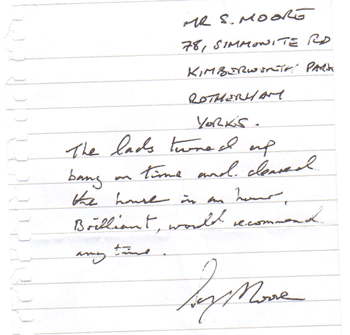 MR S. MOORE
78, SIMMONITE RD
KIMBERWORTH PARK
ROTHERHAM
YORKS.
The lads turned up
bang on time and cleared
the house in an hour,
Brilliant, would recommend
any time.
Moore